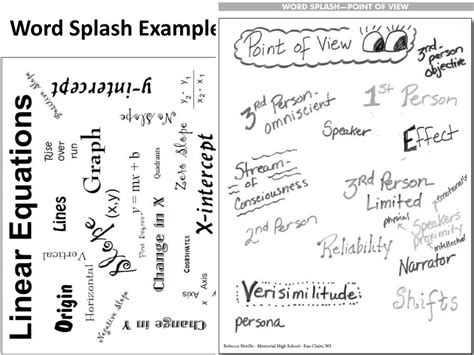 Word Splash Example
WORD SPLASH—POINT OF VIEW
Linear Equations
Positive Slope
y-intercept
y₂ - y₁
x₂ - x₁
No Slope
Rise
over
run
Graph
Quadrants
Zero Slope
X-intercept
Lines
Slope
(x,y)
y = mx + b
First Degree
Change in X
COORDINATES
Vertical
Origin
Horizontal
Negative Slope
Change in Y
X
Axis
Axis
Point of View
3rd-person
objective
3rd Person-
omniscient
1st Person
Speaker
Effect
Stream-
of
Consciousness
3rd Person
Limited
emotionale
physical
Speakers
proximity
intellectual
2nd Person
Reliability
Narrator
Verisimilitude:
persona
Shifts
Rebecca Neville - Memorial High School - Eau Claire, WI